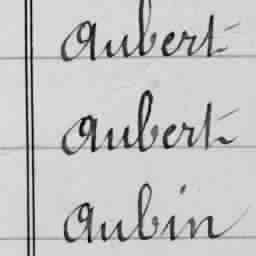 Aubert
Aubert
Aubin